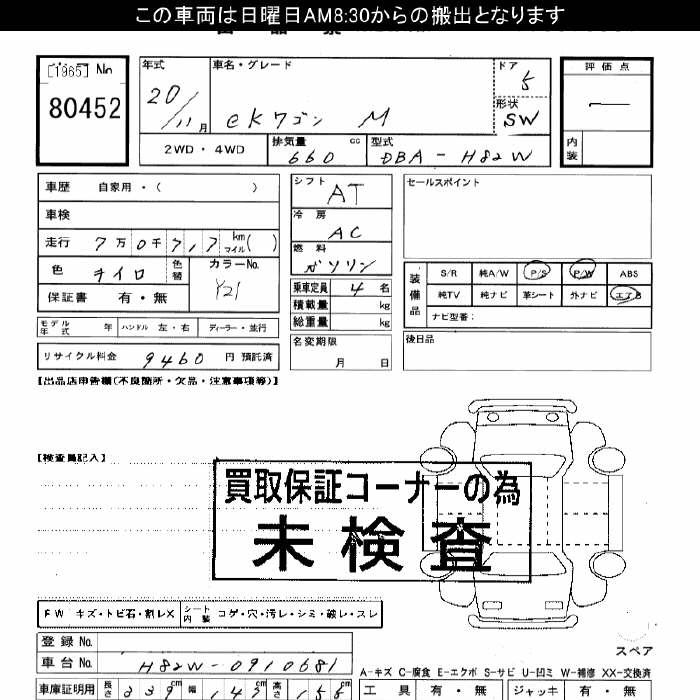 この車両は日曜日AM8:30からの搬出となります
[1965] No
80452
年式
20/11月
車名・グレード
eKワゴン M
ドア
5
形状
SW
評価点
内装
2WD・4WD
排気量 660 cc
型式 DBA-H82W
車歴 自家用・( )
車検
走行 7万0千717 km マイル( )
色 チイロ 色替
カラーNo.
Y21
保証書 有・無
シフト
AT
冷房
AC
燃料
ガソリン
乗車定員 4名
積載量 kg
総重量 kg
セールスポイント
装備品
S/R 純A/W P/S P/W ABS
純TV 純ナビ 革シート 外ナビ エアB
ナビ型番:
モデル年式 年 ハンドル 左・右 ディーラー・並行
リサイクル料金 9460 円 預託済
名変期限
月 日
後日品
【出品店申告欄(不良箇所・欠品・注意事項等)】
【検査員記入】
買取保証コーナーの為
未検査
FW キズ・トビ石・割レX
シート内装 コゲ・穴・汚レ・シミ・破レ・スレ
登録No.
車台No. H82W-0910681
スペア
A-キズ C-腐食 E-エクボ S-サビ U-凹ミ W-補修 XX-交換済
車庫証明用 長さ 339cm 幅 147cm 高さ 155cm
工具 有・無 ジャッキ 有・無